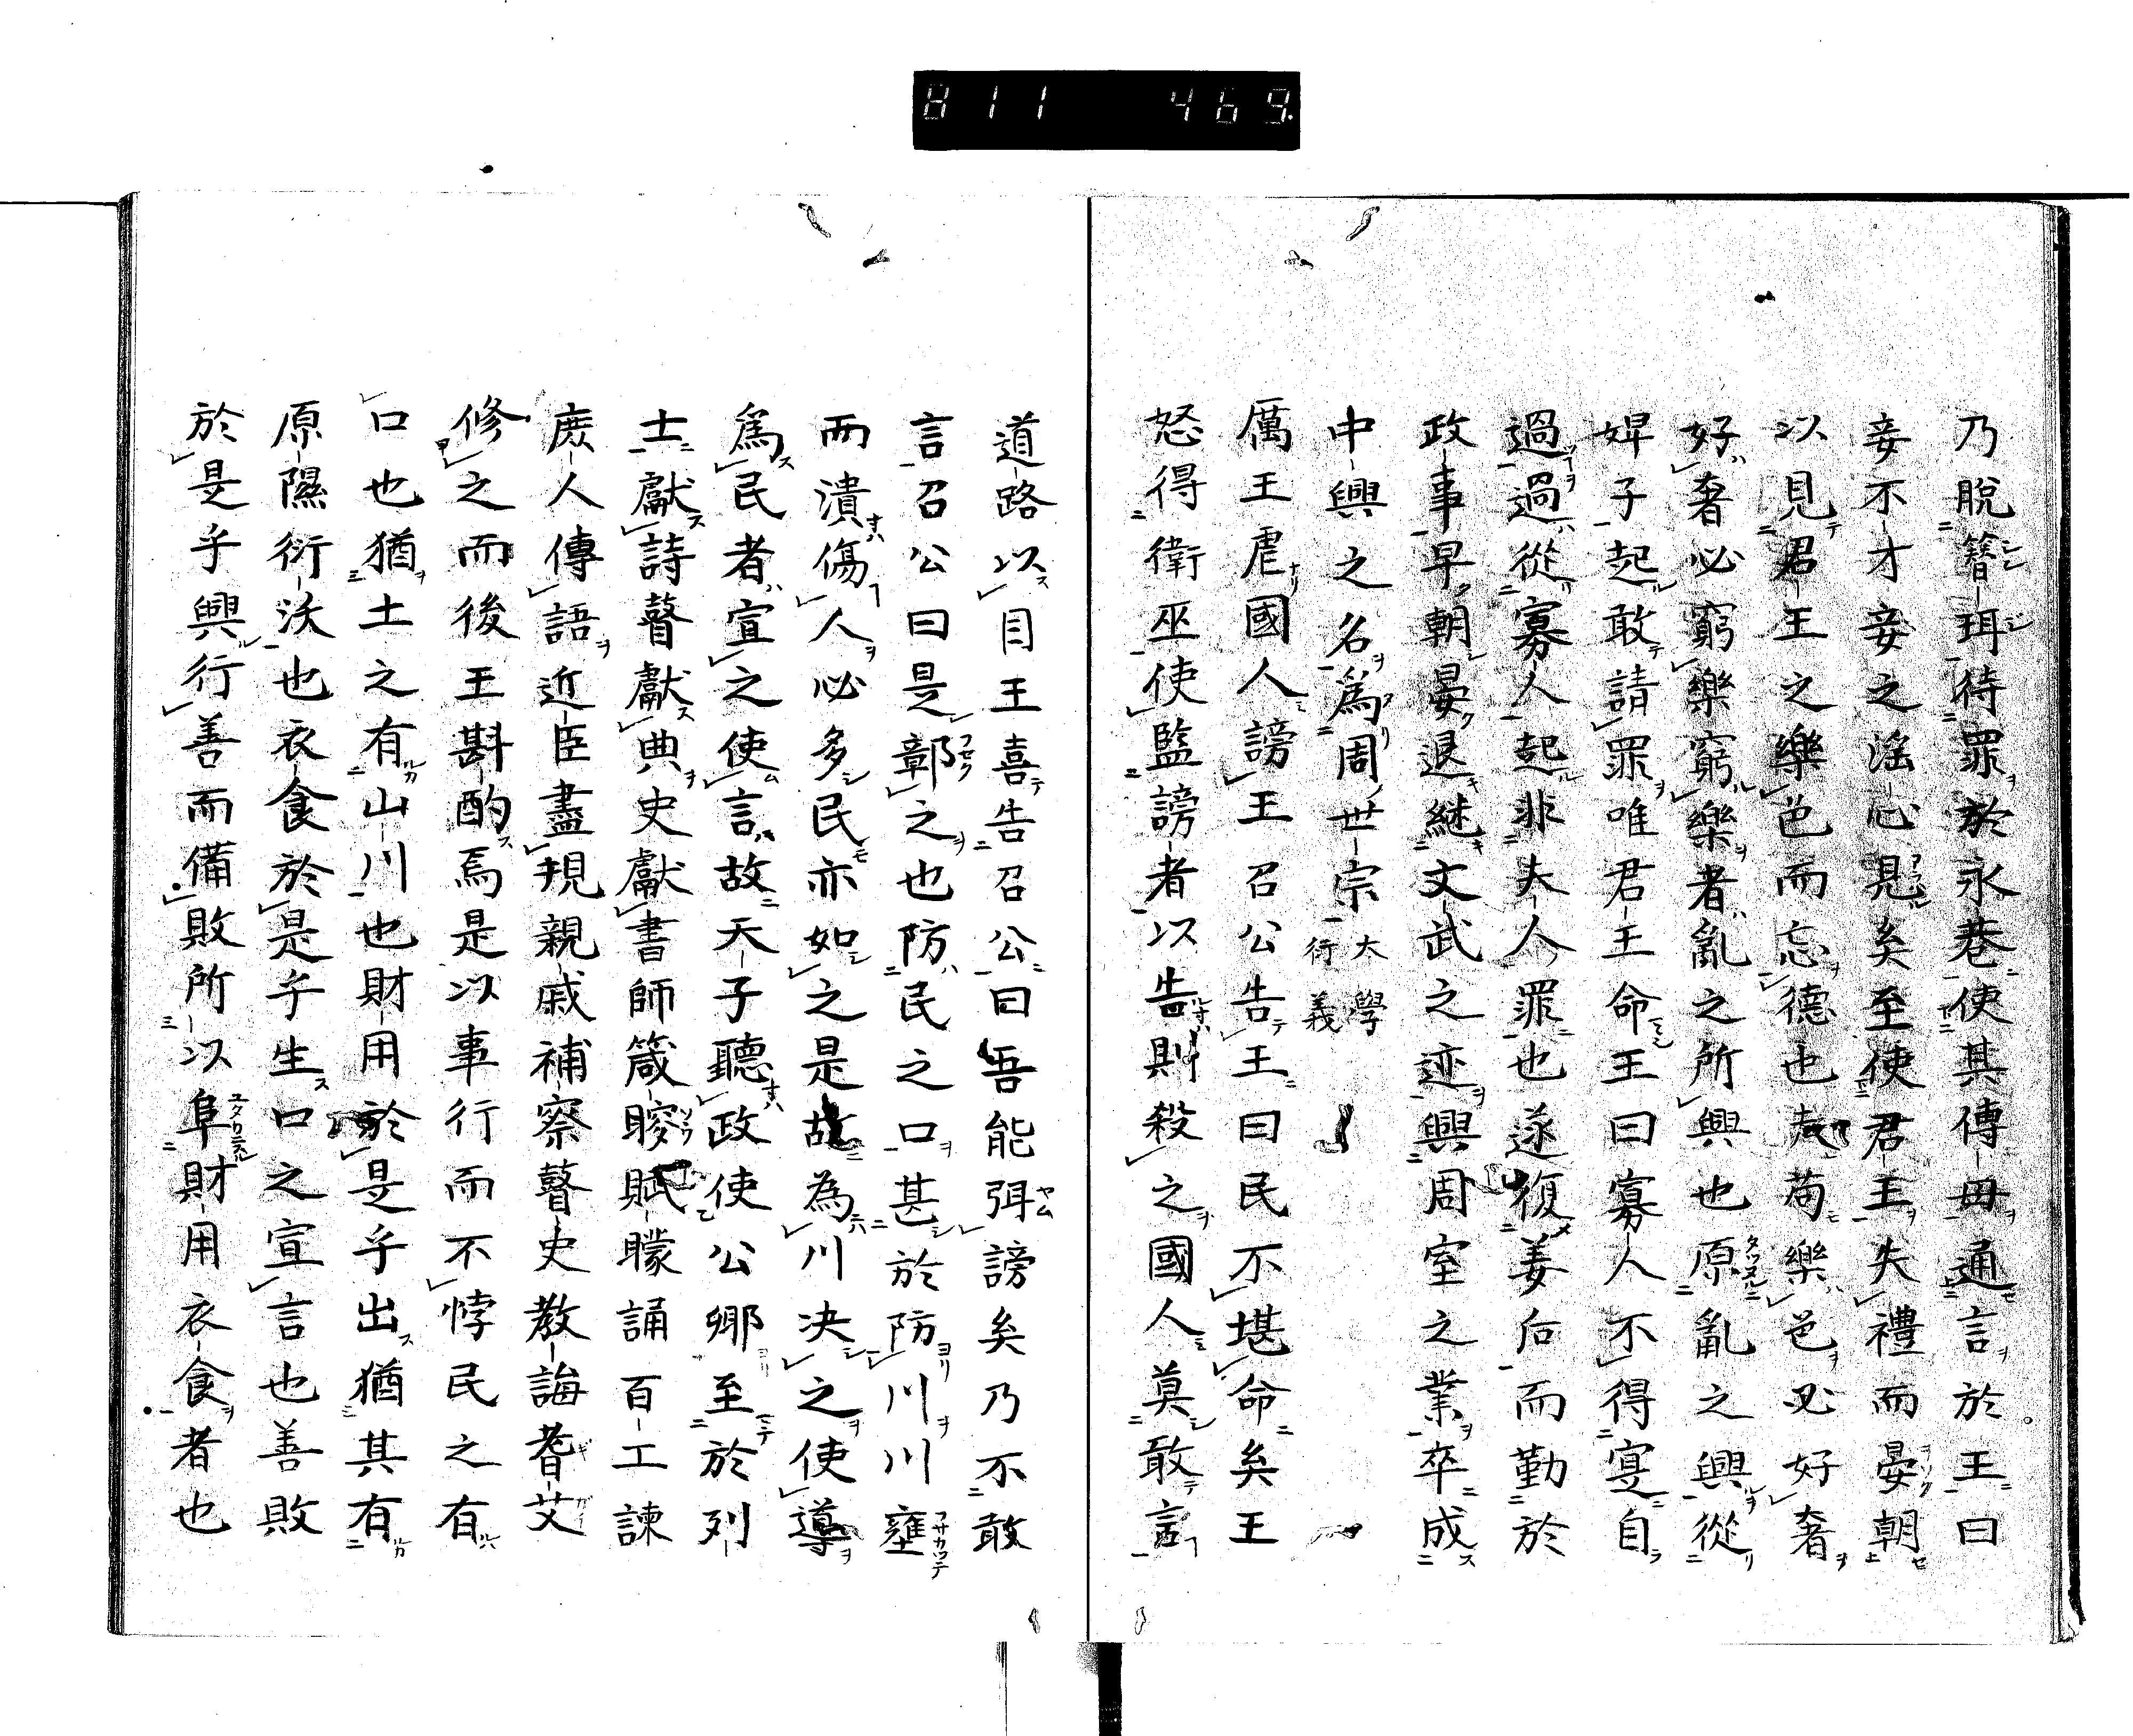 811 469.
乃脱簪珥待罪於永巷使其傳母通言於王曰
妾不才妾之滛心見矣至使君王失禮而晏朝
以見君王之樂色而忘德也夫苟樂色必好奢
好奢必窮樂窮樂者亂之所興也原亂之興從
婢子起敢請罪唯君王命王曰寡人不得寔自
過過從寡人起非夫人罪也遂復姜后而勤於
政事早朝晏退継文武之迹興周室之業卒成
中興之名為周世宗大學行義
厲王虐國人謗王召公告王曰民不堪命矣王
怒得衛巫使監謗者以告則殺之國人莫敢言
道路以目王喜告召公曰吾能弭謗矣乃不敢
言召公曰是鄣之也防民之口甚於防川川壅
而潰傷人必多民亦如之是故為川决之使導
爲民者宣之使言故天子聽政使公卿至於列
士獻詩瞽獻典史獻書師箴瞍賦矇誦百工諫
庶人傳語近臣盡規親戚補察瞽史教誨耆艾
修之而後王斟酌焉是以事行而不悖民之有
口也猶土之有山川也財用於是乎出猶其有
原隰衍沃也衣食於是乎生口之宣言也善敗
於是乎興行善而備敗所以阜財用衣食者也